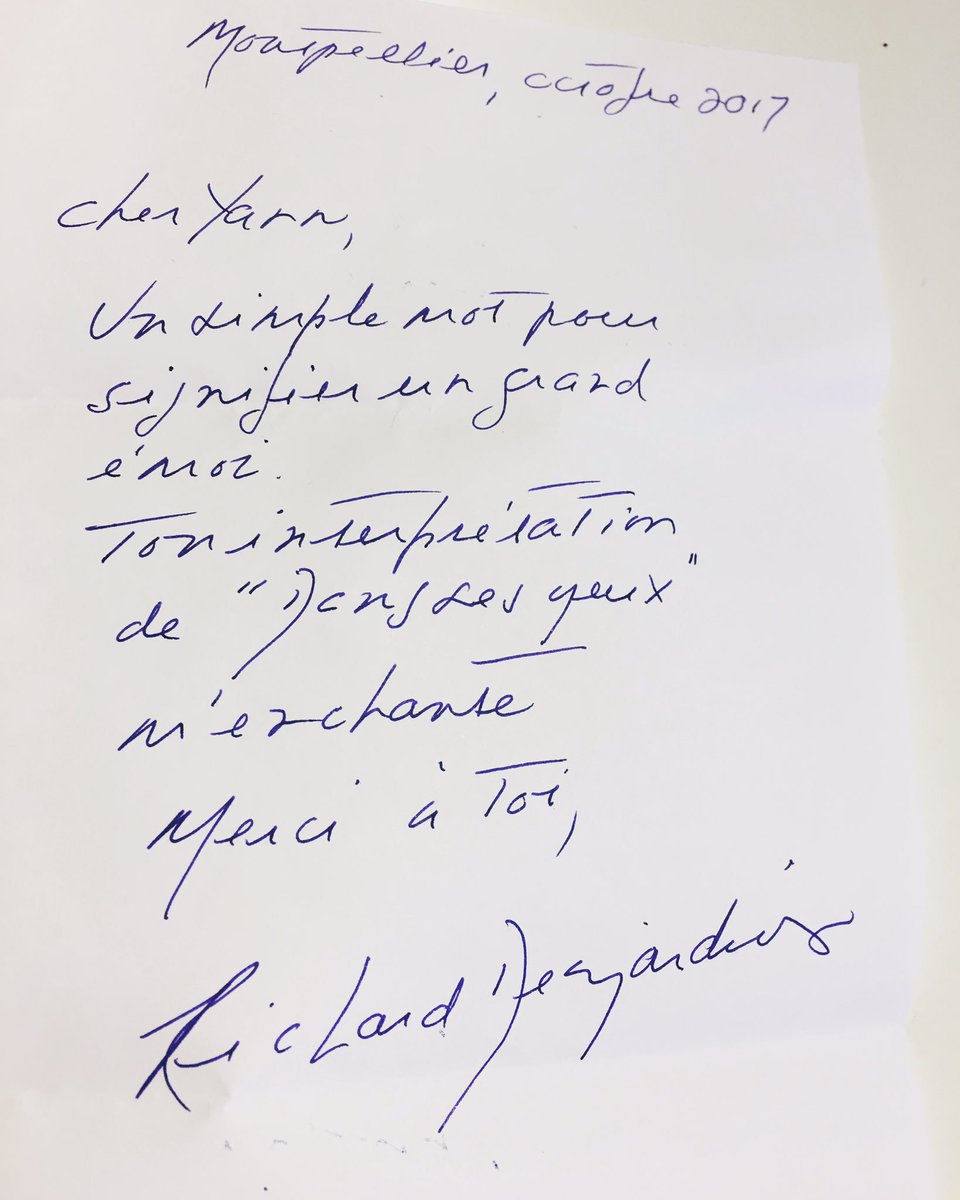 Montpellier, octobre 2017
Cher Yann,
Un simple mot pour
signifier un grand
émoi.
Ton interprétation
de "Dans ses yeux"
m'enchante
Merci à toi,
Richard Desjardins